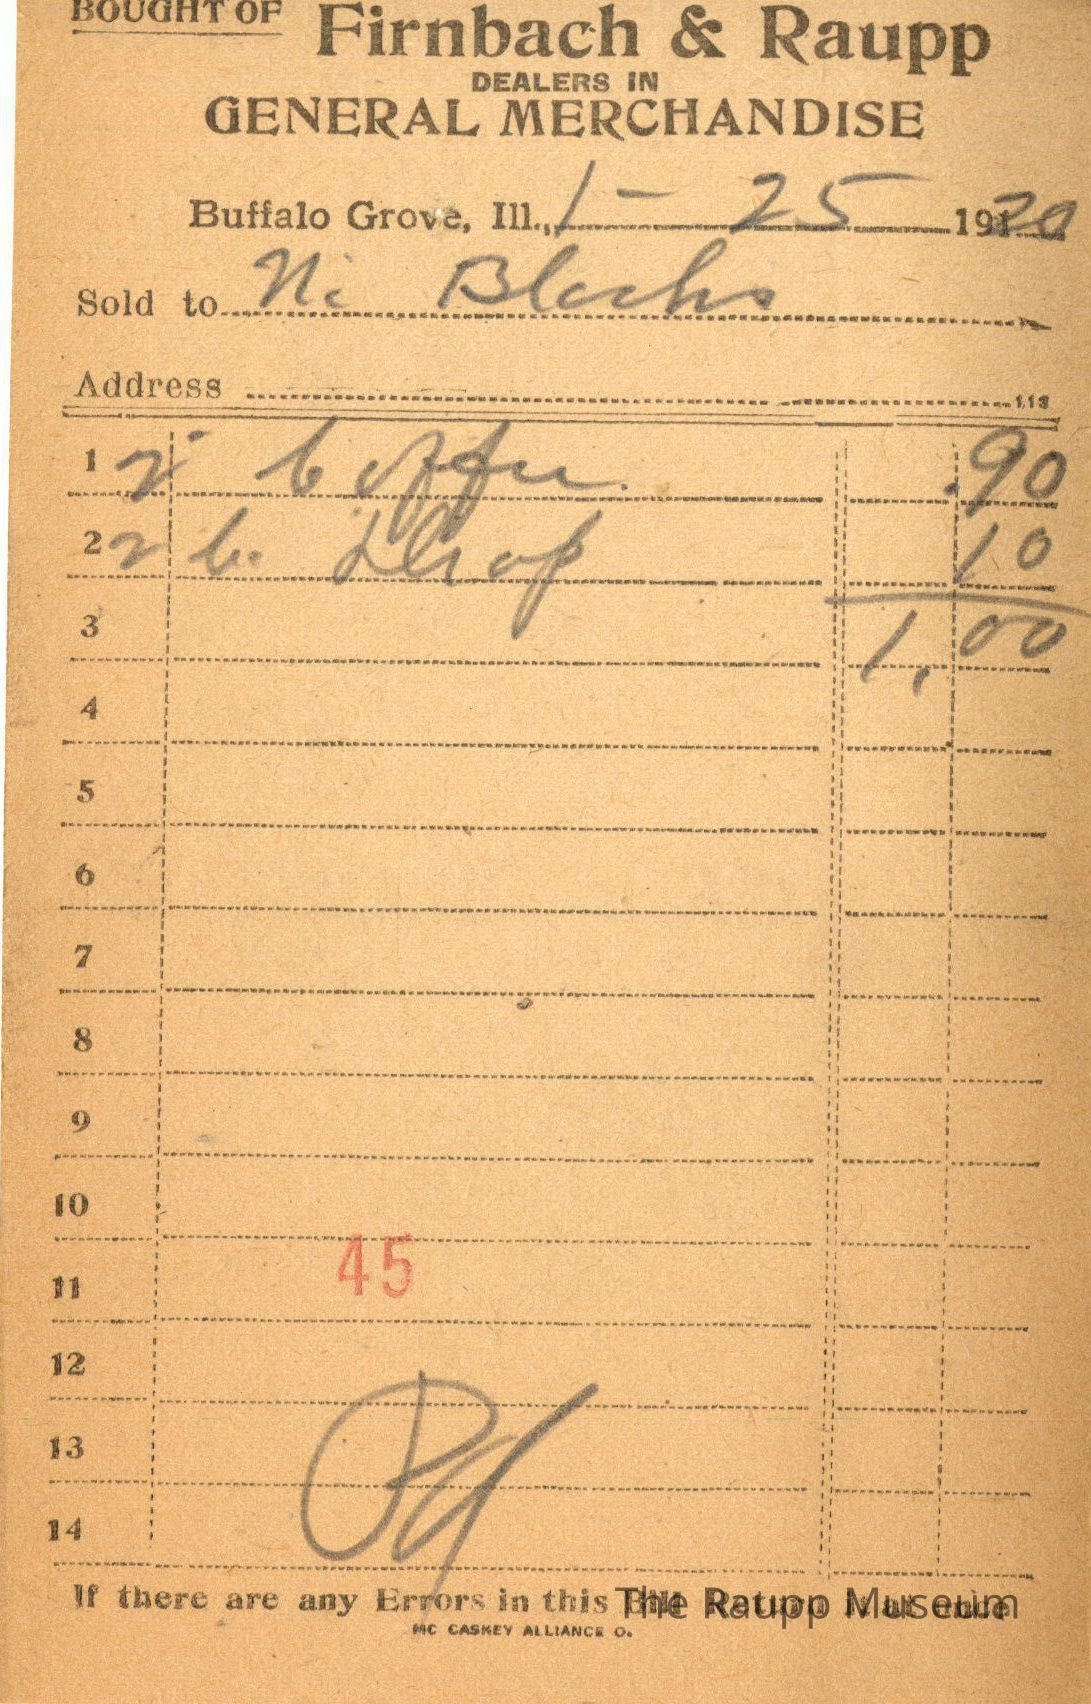 BOUGHT OF
Firnbach & Raupp
DEALERS IN
GENERAL MERCHANDISE
Buffalo Grove, Ill., 1 - 25 1920
Sold to Ni
Address 113
1 2 Coffee .90
2 2 10
3 1.00
4
5
6
7
8
9
10
45
11
12
13
14
If there are any Errors in this Bill Return it at once
The Raupp Museum
MC CASKEY ALLIANCE O.